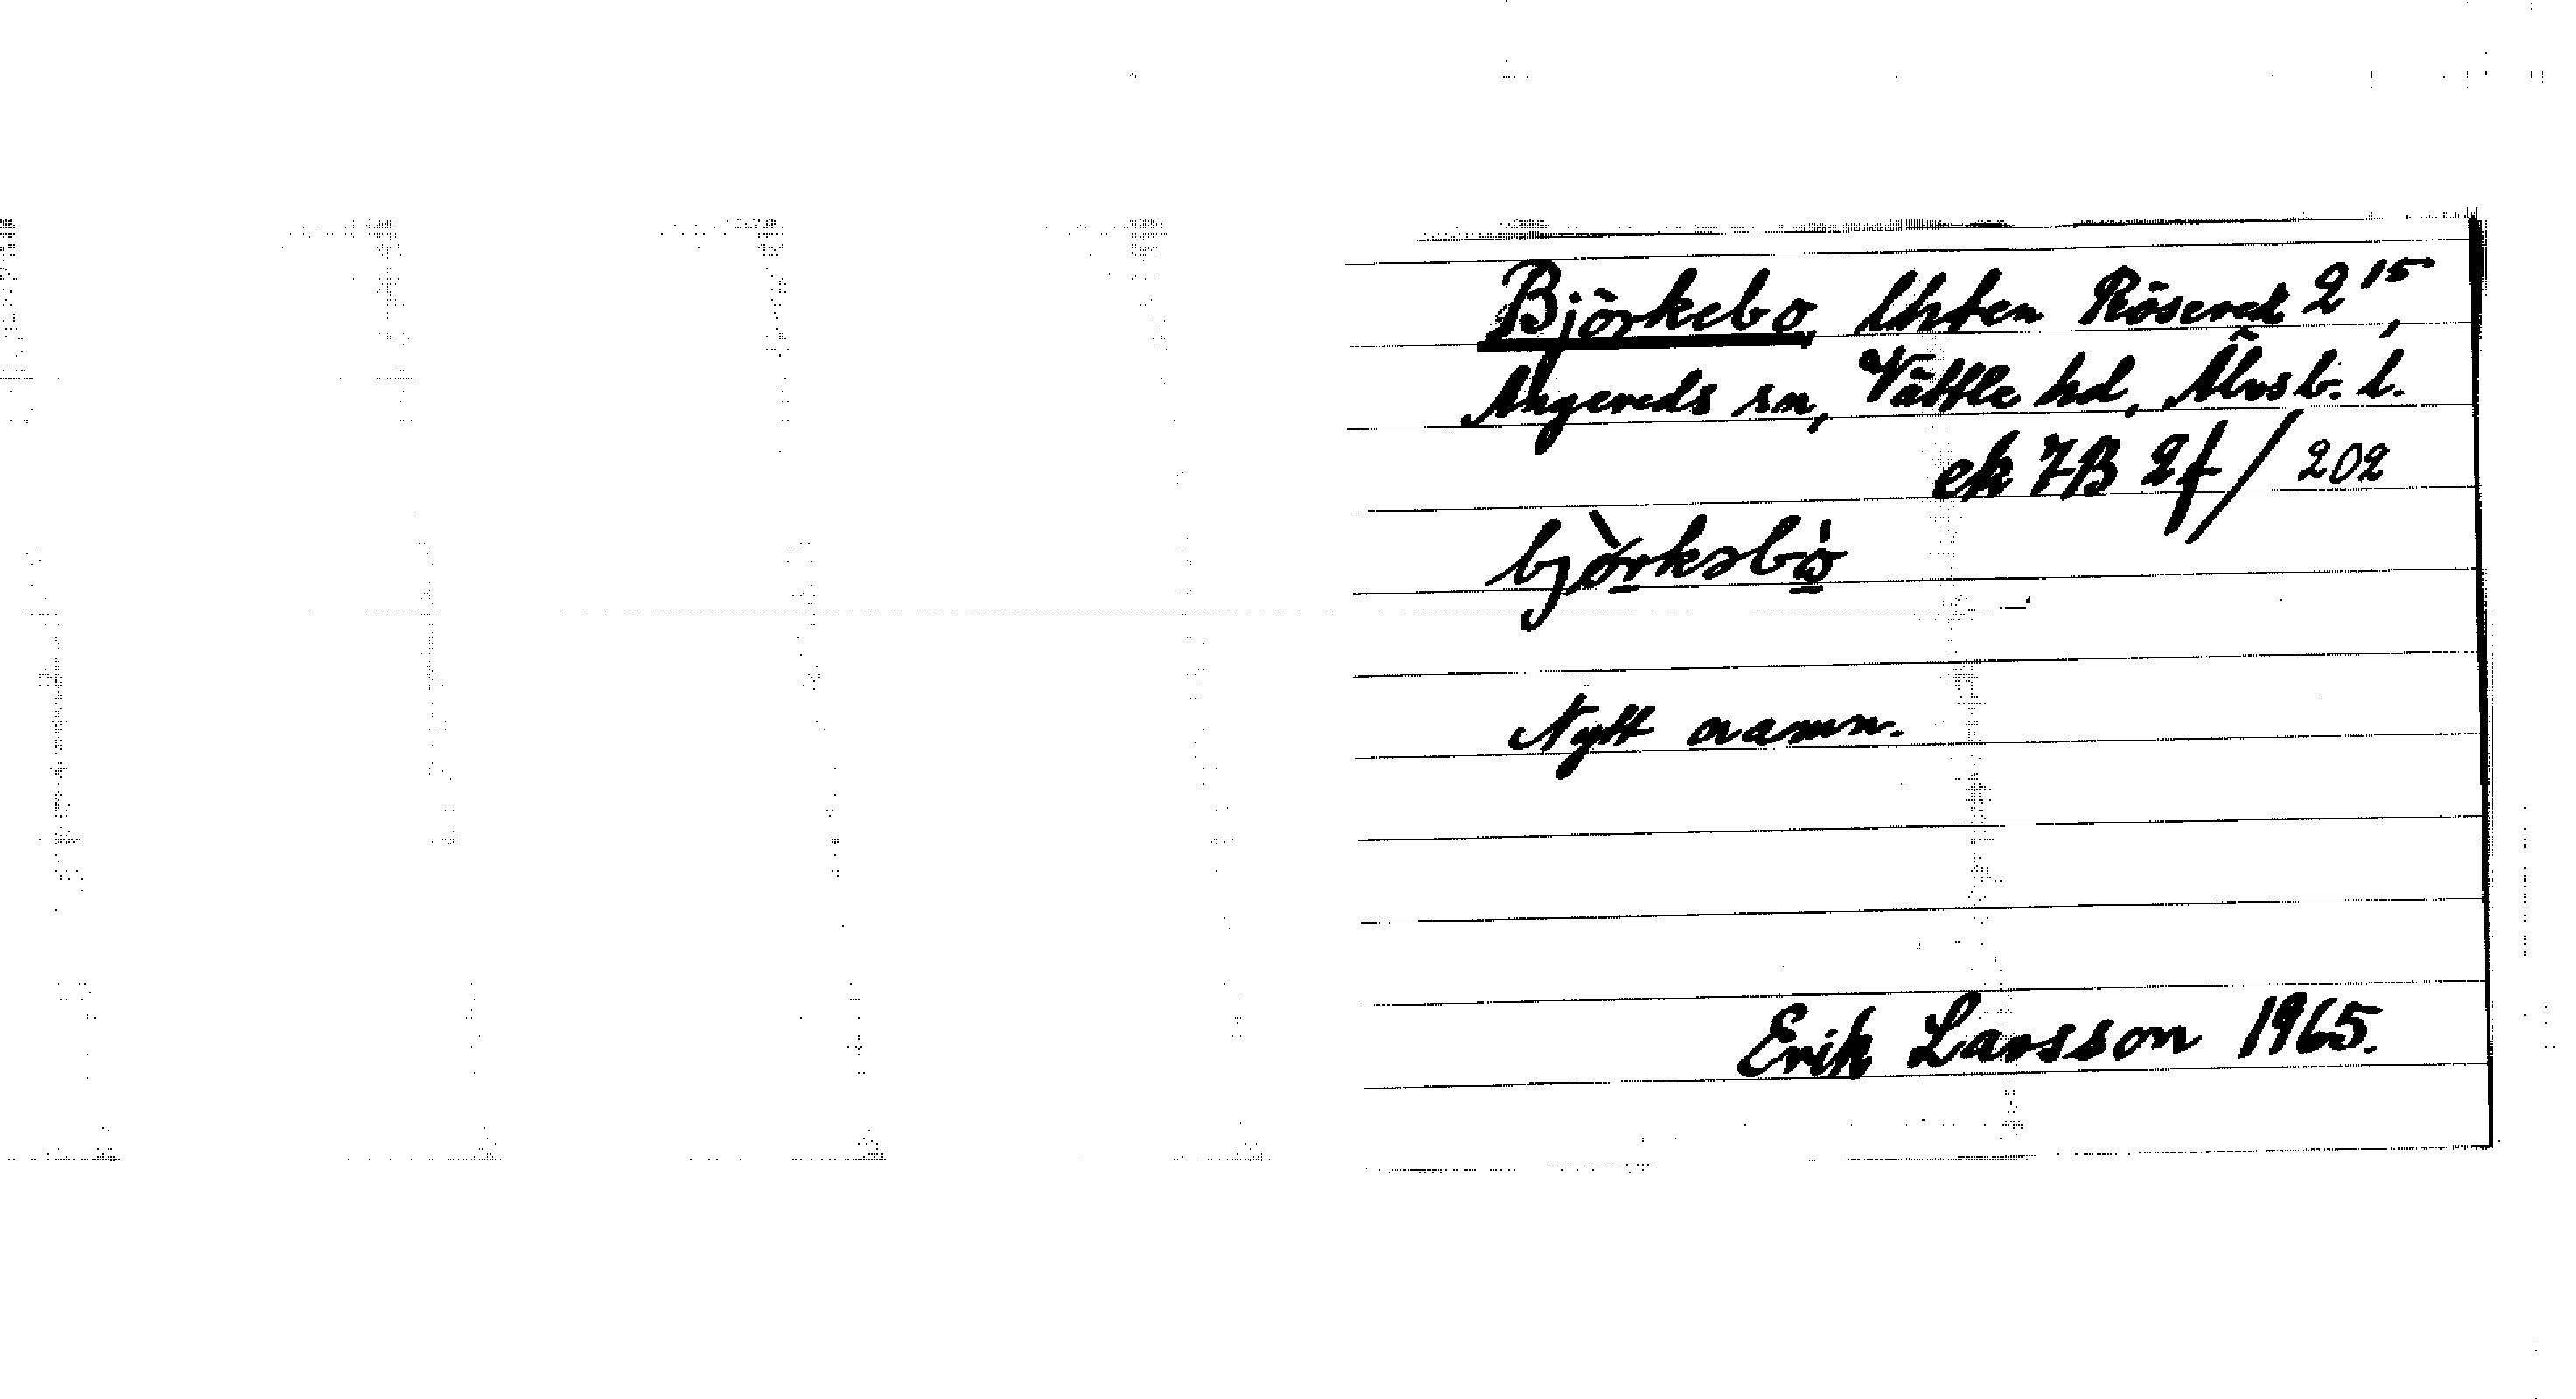 Björkebo, lht en Rösered 2¹⁵,
Angereds sn, Vättle hd, Älvsb. l.
ek 7B 2f/202
bjö̀rkəbò
Nytt namn.
Erik Larsson 1965.